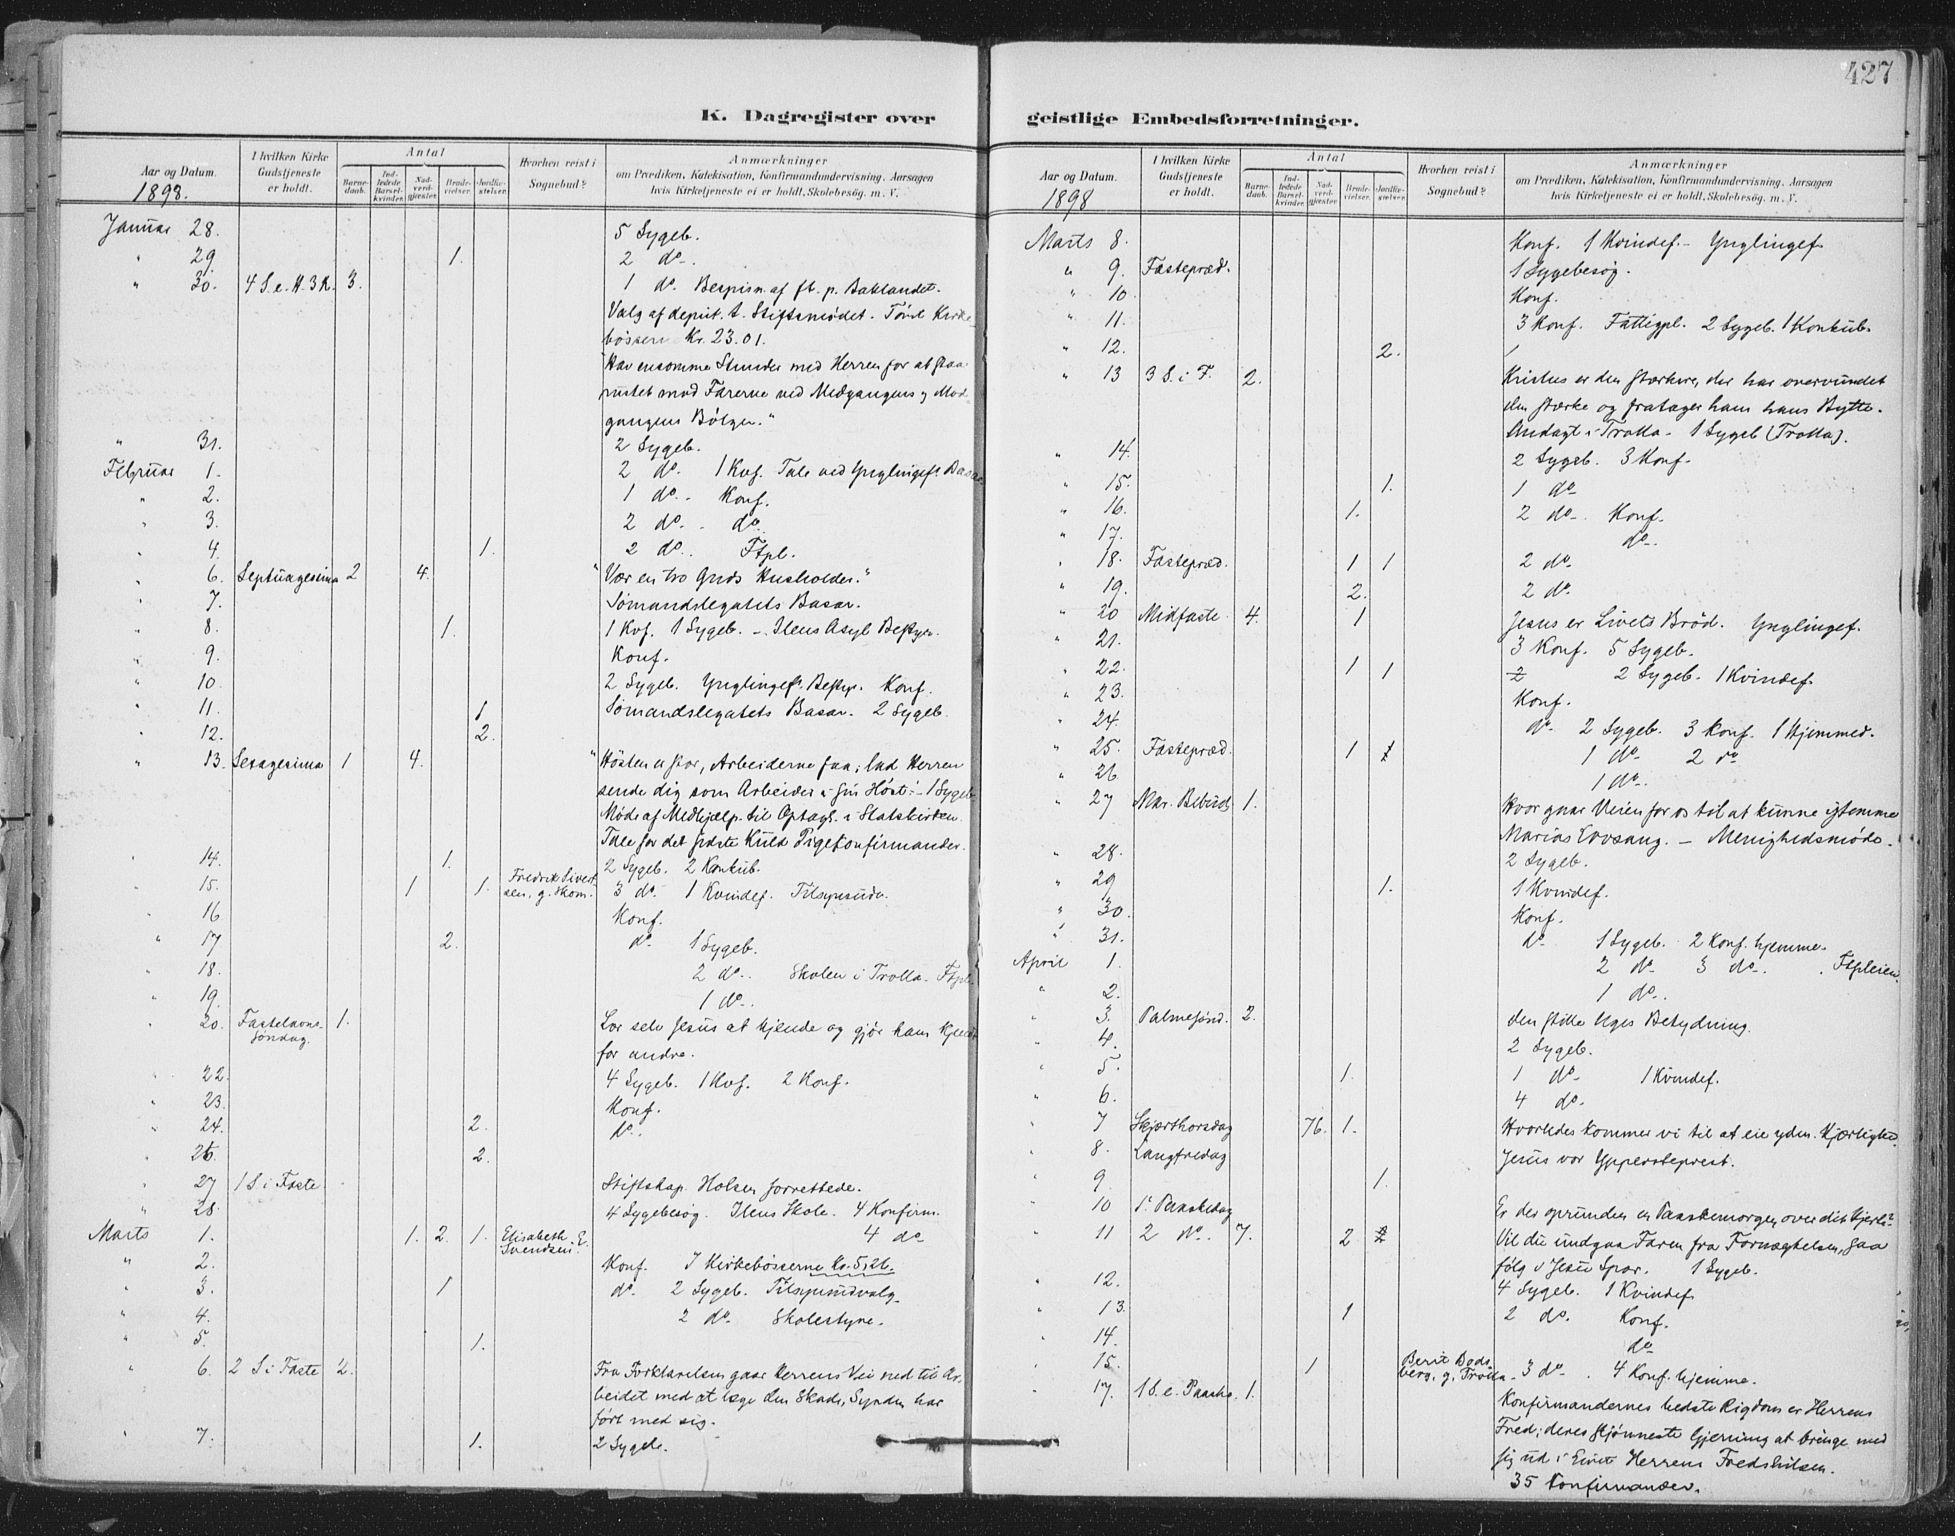 427
K. Dagregister over
Aar og Datum.
1898.
I hvilken Kirke Gudstjeneste er holdt.
Antal
Barnedaab.
Indledede Barselkvinder.
Nadverdgjester.
Brudevielser.
Jordfæstelser.
Hvorhen reist i Sognebud?
Anmærkninger
om Prædiken, Katekisation, Konfirmandundervisning. Aarsagen
hvis Kirketjeneste ei er holdt, Skolebesög. m. V.
Januar 28. 5 Sygeb.
" 29 1. 2 do.
" 30. 4 S. e. H. 3 K. 3. 1 do. Bespisn. af ft. p. Baklandet.
Valg af deput. t. Stiftsmödet. Tömt Kirke-
bössen Kr. 23.01.
"Hav ensomme Stunder med Herren for at staa
rustet mod Farerne ved Medgangens og Mod-
gangens Bölger."
" 31. 2 Sygeb.
Februar 1. 2 do. 1 Kvf. Tale ved Ynglingef. Basar
" 2. 1 do. Konf.
" 3. 2 do. do.
" 4. 1. 2 do. Ftpl.
" 6. Septuagesima 2 4. "Vær en tro Guds Husholder."
" 7. Sømandslegatets Basar.
" 8. 1. 1 Kvf. 1 Sygeb. – Ilens Asyl Bestyr.
" 9. Konf.
" 10. 2 Sygeb. Ynglingef. Bestyr. Konf.
" 11. 1 Sømandslegatets Basar. 2 Sygeb.
" 12. 2.
" 13. Sexagesima 1 4. "Hösten er stor, Arbeiderne faa; lad Herren
sende dig som Arbeider i sin Höst." – 1 Sygeb.
Möde af Medhjælp. til Optagl. i Statskirken.
Tale for det første Kuld Pigekonfirmander.
" 14. 1. 2 Sygeb. 2 Konkub.
" 15. 1 1. Fredrik Sivert-
sen, g. Skom. 3 do. 1 Kvindef. Tilsynsudv.
" 16 Konf.
" 17 2. do. 1 Sygeb.
" 18. 2 do. Skolen i Trolla. Ftpl.
" 19. 1 do.
" 20. Fastelavns-
søndag. 1. Lær selv Jesus at kjende og gjör ham kjendt
for andre.
" 22. 4 Sygeb. 1 Kvf. 2 Konf.
" 23. Konf.
" 24. 2. do.
" 26. 2.
" 27 1 S. i Faste Stiftskap. Holsen forrettede.
" 28. 4 Sygebesög. Ilens Skole. 4 Konfirm.
Marts 1. 1. 2. 1. Elisabeth E.
Svendsen 4 do
" 2. Konf. I Kirkebösserne Kr. 5,26.
" 3. 1 do. 2 Sygeb. Tilsynsudvalg
" 4. 2 do. Skolestyre.
" 5. 1.
" 6. 2 S. i Faste 2. Fra Forklarelsen gaar Herrens Vei ned til Ar-
beidet med at læge den Skade, Synden har
fört med sig.
" 7. 1. 2 Sygeb.
geistlige Embedsforretninger.
Aar og Datum.
1898
I hvilken Kirke Gudstjeneste er holdt.
Antal
Barnedaab.
Indledede Barselkvinder.
Nadverdgjester.
Brudevielser.
Jordfæstelser.
Hvorhen reist i Sognebud?
Anmærkninger
om Prædiken, Katekisation, Konfirmandundervisning. Aarsagen
hvis Kirketjeneste ei er holdt, Skolebesög. m. V.
Marts 8. Konf. 1 Kvindef. – Ynglingef.
" 9. Fastepræd. 1 Sygebesög.
" 10. Konf.
" 11. 3 Konf. Fattigpl. 2 Sygeb. 1 Konkub.
" 12. 2.
" 13 3 S. i F. 2. Kristus er den stærkere, der har overvundet
den stærke og fratager ham hans Bytte.
Andagt i Trolla. 1 Sygeb (Trolla).
" 14. 2 Sygeb. 3 Konf.
" 15. 1. 1 do
" 16. 1. 2 do. Konf.
" 17. do.
" 18. Fastepræd. 1 1 2 do.
" 19. 2. 2 do.
" 20 Midfaste. 4. 1 Jesus er Livets Bröd. Ynglingef.
" 21. 3 Konf. 5 Sygeb.
" 22. 1 1 2 Sygeb. 1 Kvindef.
" 23. Konf.
" 24. do. 2 Sygeb. 3 Konf. 1 Hjemmed.
" 25. Fastepræd. 1 1 1 do. 2 do
" 26 1 do.
" 27 Mar. Bebud. 1. Hvor gaar Veien for os til at kunne istemme
Marias Lovsang. – Menighedsmöde.
" 28. 2 Sygeb.
" 29 1. 1 Kvindef.
" 30. Konf.
" 31. do 1 Sygeb. 2 Konf. hjemme.
April 1. 2 do 3 do. Ftpleien
" 2. 1 do.
" 3. Palmesønd. 2. Den stille Uges Betydning.
" 4. 2 Sygeb.
" 5. 1. 1 do 1 Kvindef.
" 6. 4 do.
" 7 Skjærthorsdag 76. 1. Hvorledes kommer vi til at eie ydm. Kjærlighed.
" 8. Langfredag Jesus vor Ypperstepræst.
" 9. 1.
" 10 1. Paaskedag Er der oprunden en Paaskemorgen over dit Hjerte?
" 11 2 do. 7. 2 Vil du undgaa Faren fra Fornægtelsen, saa
fölg i Jesu Spor. 1 Sygeb.
" 12. 4 Sygeb. 1 Kvindef
" 13. 1 2 do. Konf.
" 14. do
" 15. 1 Berit Bods-
berg, g, Trolla 3 do. 4 Konf. hjemme.
" 17. 1 S. e. Paaske. 1. Konfirmandernes bedste Rigdom er Herrens
Fred; deres skjönneste Gjerning at bringe med
sig ud i Livet Herrens Fredshilsen.
35 Konfirmander.